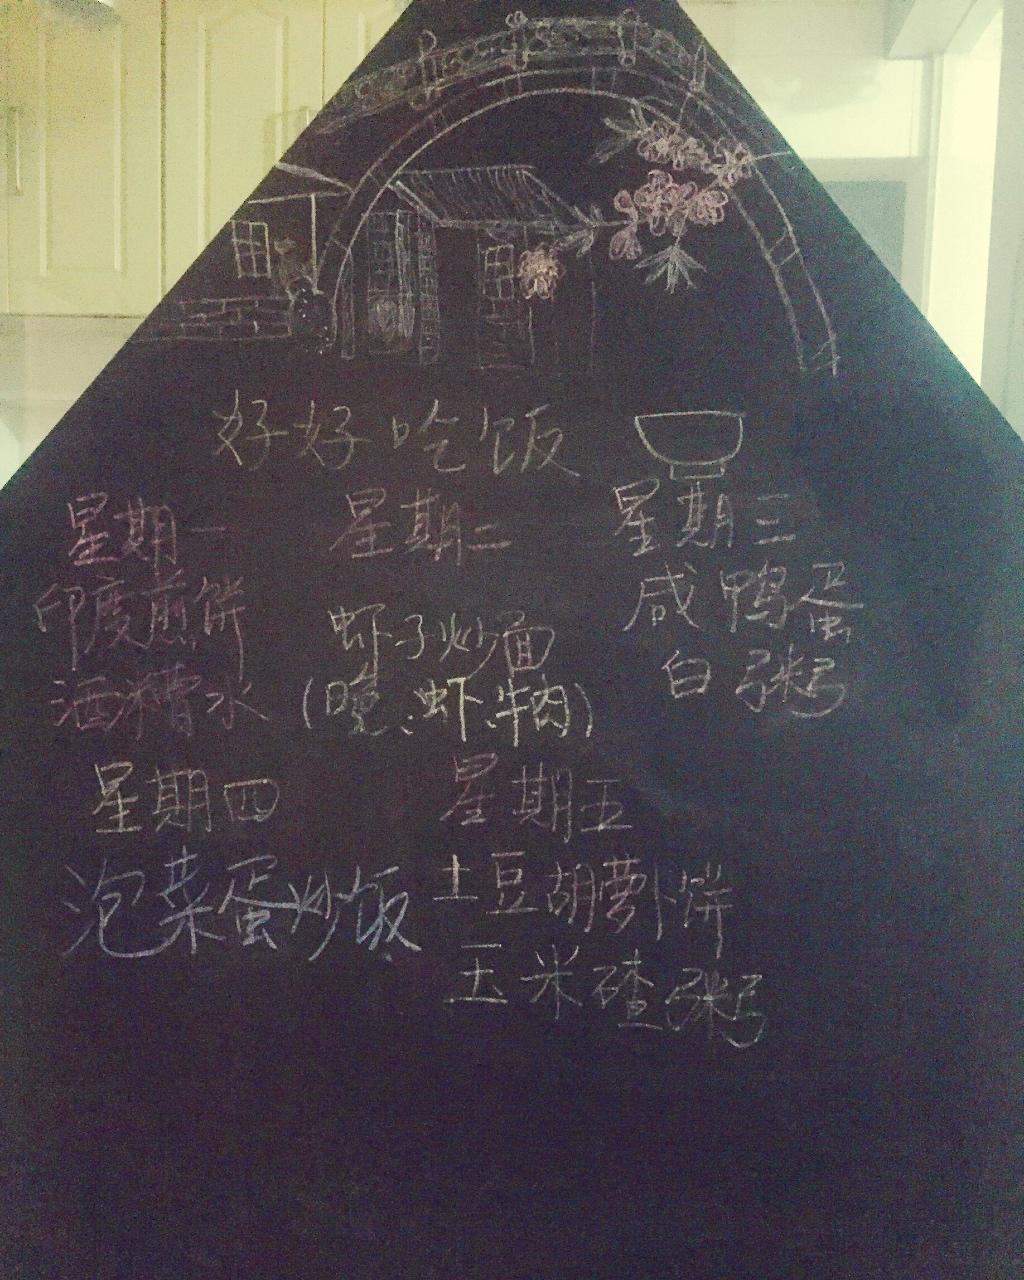 好好吃饭
星期一
印度煎饼
酒糟水
星期二
虾子炒面
(晚:虾.牛肉)
星期三
咸鸭蛋
白粥
星期四
泡菜蛋炒饭
星期五
土豆胡萝卜饼
玉米碴粥